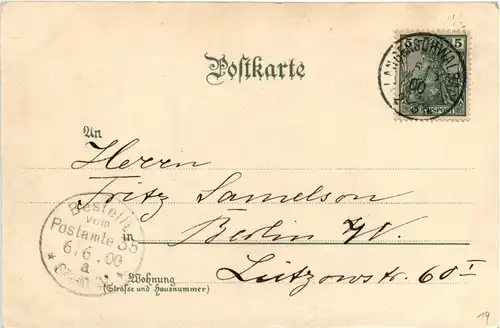 Postkarte
5 5
LANGENSCHWALBACH
REICHSPOST
An
Herrn
Fritz Samelson
in Berlin W.
Lützowstr. 60 I
Bestellt
vom
Postamte 35
6/6.00
a
Wohnung
(Straße und Hausnummer)
19